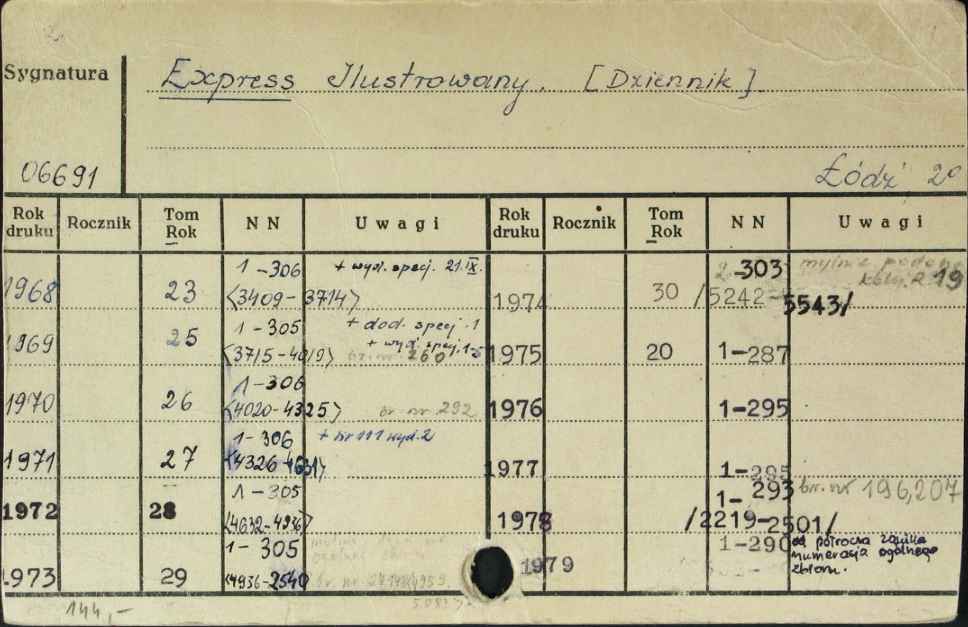 Sygnatura
Express Ilustrowany. [Dziennik]
06691
Łódź 2°
Rok druku Rocznik Tom Rok N N Uwagi Rok druku Rocznik Tom Rok N N Uwagi
1968 23 1-306 + wyd. specj. 21.IX.
<3409-3714>
1969 25 1-305 + dod. specj. 1
<3715-4019> + wyd. specj. 1-5
br. nr. 260
1970 26 1-306
<4020-4325> br. nr 292
1971 27 1-306 + nr 111 wyd. 2
<4326-4631>
1972 28 1-305
<4632-4936>
1973 29 1-305
<4936-2540 br. nr
144,-
1974 30 2-303 mylnie podano
/5242-5543/ kolej. R. 19
1975 20 1-287
1976 1-295
1977 1-295
1978 1-293 br. nr 196,207
/2219-2501/
1979 1-290 od półrocza zanika
numeracja ogólnego
zbioru.